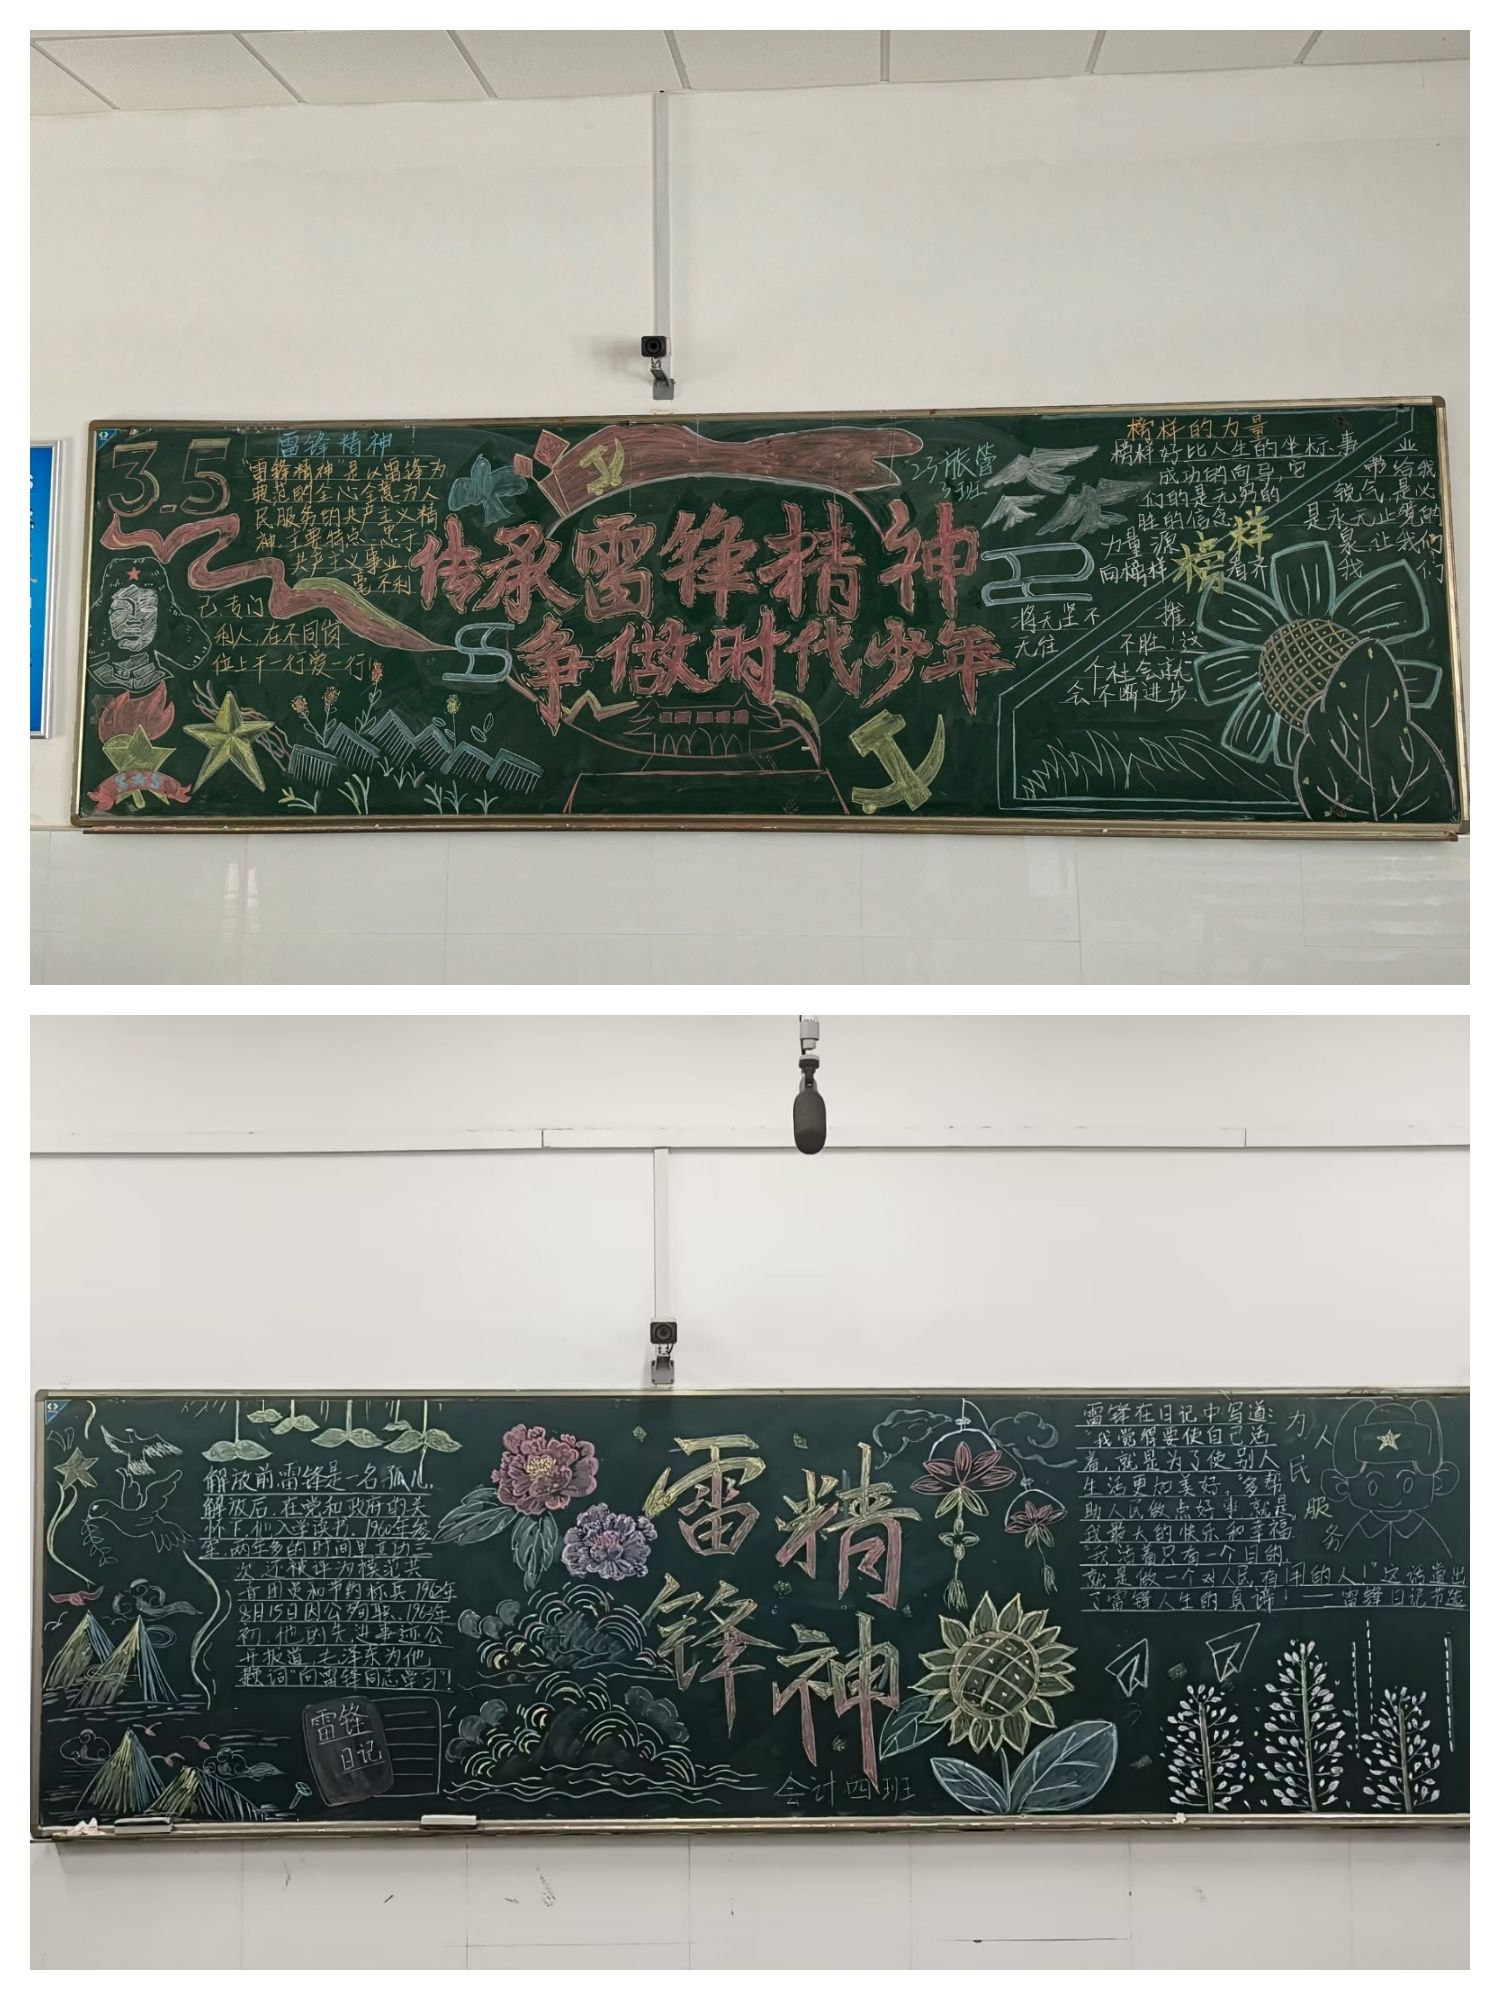 3.5
雷锋精神!
"雷锋精神"是以雷锋为
典范的全心全意为人
民服务的共产主义精
神,主要特点:忠于
共产主义事业,
毫不利
己,专门
利人,在不同岗
位上干一行爱一行!
23旅管
3班
传承雷锋精神
争做时代少年
榜样的力量
榜样好比人生的坐标,事 业
成功的向导,它 带给我
们的是无穷的 锐气,是必
胜的信念, 是永无止竟的
力量源 泉,让我们
向榜样 看齐 我 们
榜样
将无坚不 摧,
无往 不胜!这
个社会就
会不断进步.
雷锋
精神
会计四班
解放前雷锋是一名孤儿,
解放后,在党和政府的关
怀下,他入学读书,1960年参
军,两年多的时间里立功三
次,还被评为模范共
青团员和节约标兵,1962年
8月15日因公殉职、1963年
初,他的先进事迹公
开报道,毛泽东为他
题词"向雷锋同志学习"!
雷锋
日记
雷锋在日记中写道:
"我觉得要使自己活
着,就是为了使别人
生活更加美好。"多帮
助人民做点好事,就是
我最大的快乐和幸福.
我活着只有一个目的,
就是做一个对人民有用的人!"这话道出
了雷锋人生的真谛! ——雷锋日记节选
为人民服务